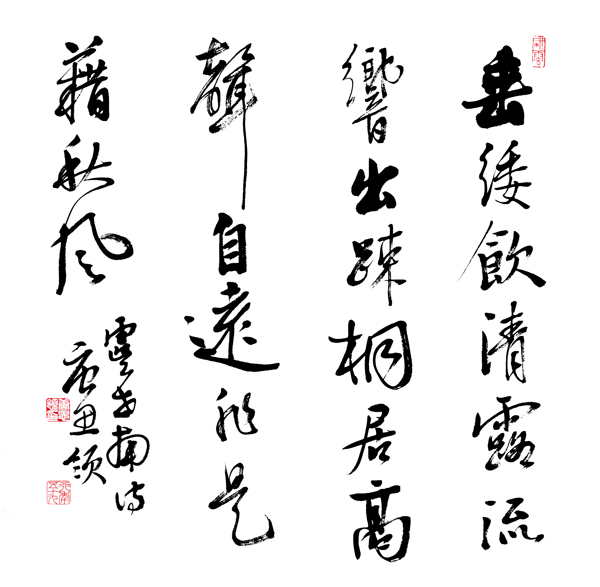 垂緌飲清露流
響出踈桐居高
聲自遠非是
藉秋風
虞世南詩